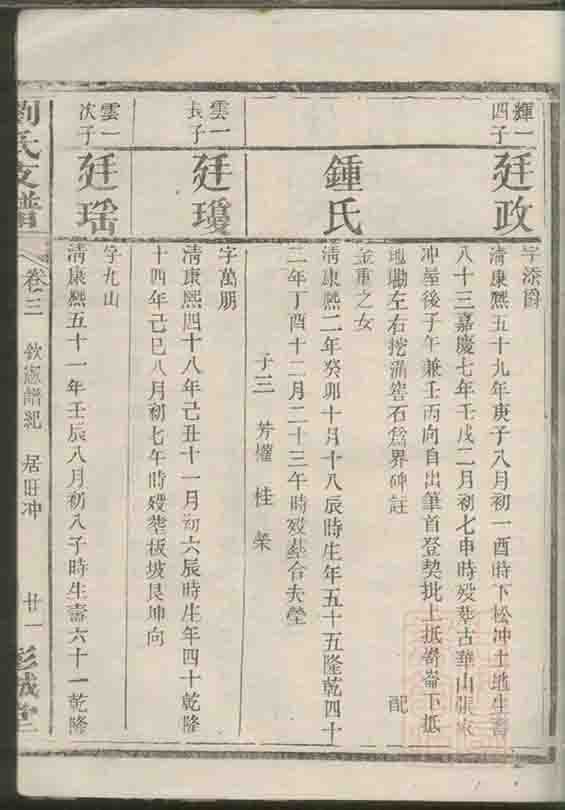 輝一四子
廷政
字添爵
清康熙五十九年庚子八月初一酉時下松冲土地生壽
八十三嘉慶七年壬戌二月初七申時殁葬古華山張家
冲屋後子午兼壬丙向自出筆首登契批上抵嵛下抵
坳左右挖溝窖石爲界碑註 配
鍾氏
金重之女
清康熙二年癸卯十月十八辰時生年五十五隆乾四十
二年丁酉十二月二十三午時殁葬合夫塋
子三 芳 桂 榮
雲一長子
廷瓊
字萬朋
清康熙四十八年己丑十一月初六辰時生年四十乾隆
十四年己巳八月初七午時殁葬板坡艮坤向
雲一次子
廷瑶
字九山
清康熙五十一年壬辰八月初八子時生壽六十一乾隆
劉氏支譜 卷三 欽憲譜紀 居旺冲 廿一 彭城堂